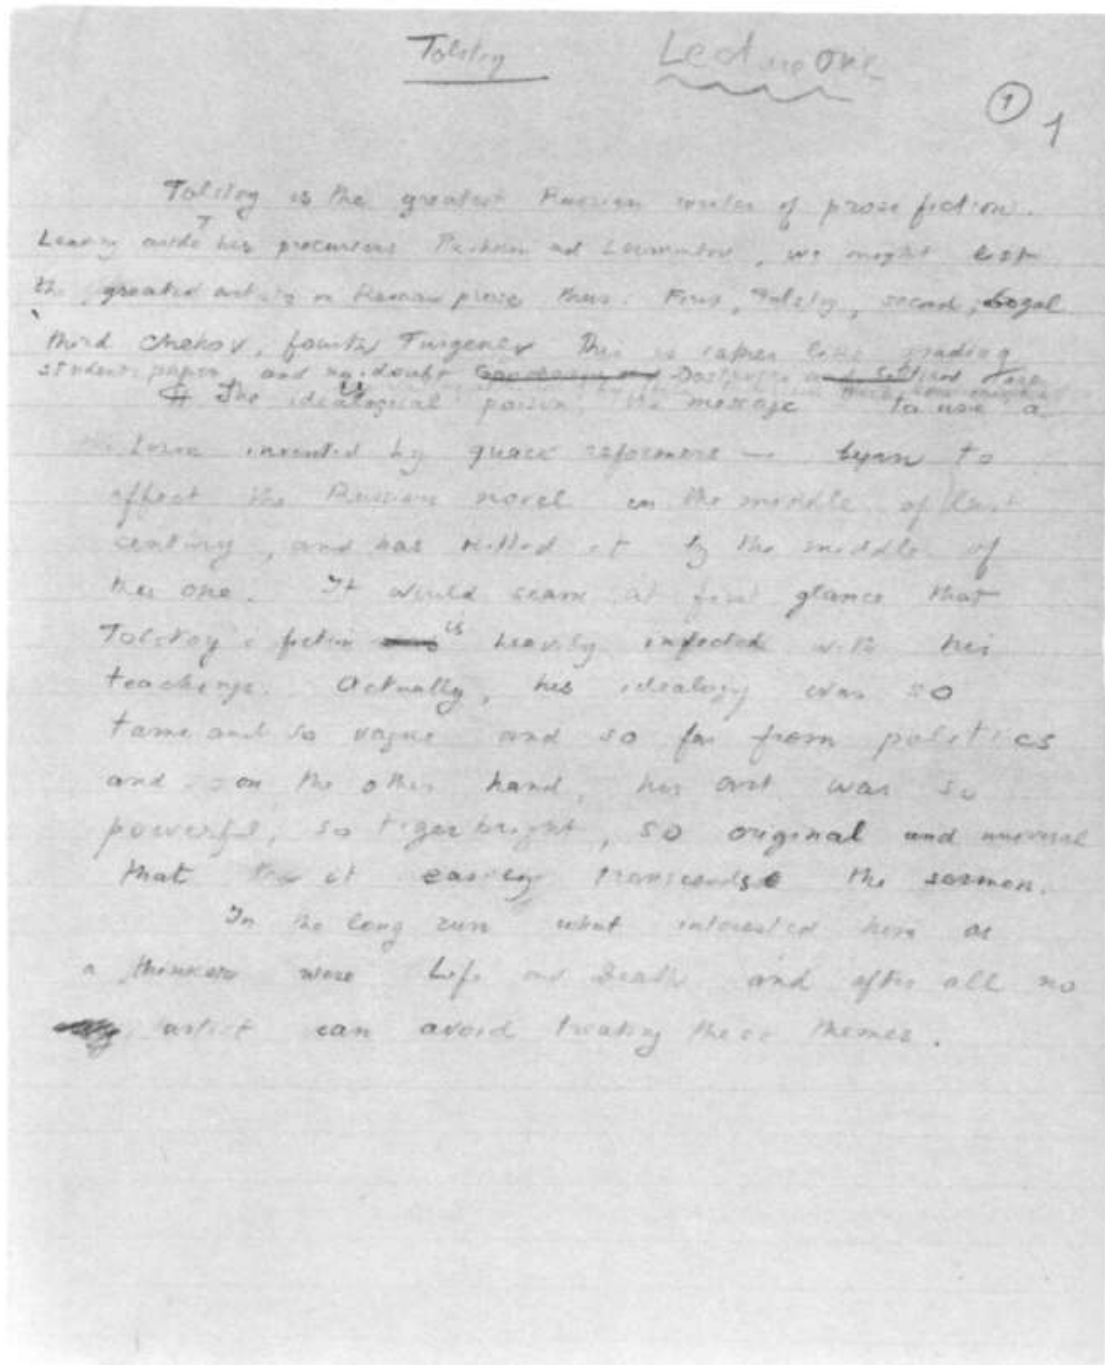 Tolstoy Lecture One
1 1
Tolstoy is the greatest Russian writer of prose fiction.
Leaving aside his precursors Pushkin and Lermontov, we might list
the greatest artists in Russian prose thus: First, Tolstoy, second, Gogol
third Chekov, fourth Turgenev This is rather like grading
students papers and no doubt Dostoevski and
The ideological poison, the message to use a
term invented by quack reformers — began to
affect the Russian novel in the middle of last
century, and has killed it by the middle of
this one. It would seam at first glance that
Tolstoy's fiction is heavily infected with his
teachings. Actually, his idealogy was so
tame and so vague and so far from politics
and on the other hand, his art was so
powerful, so tiger bright, so original and universal
that it easily transcends the sermon.
In the long run what interested him as
a thinker were Life and Death and after all no
artist can avoid treating these themes.